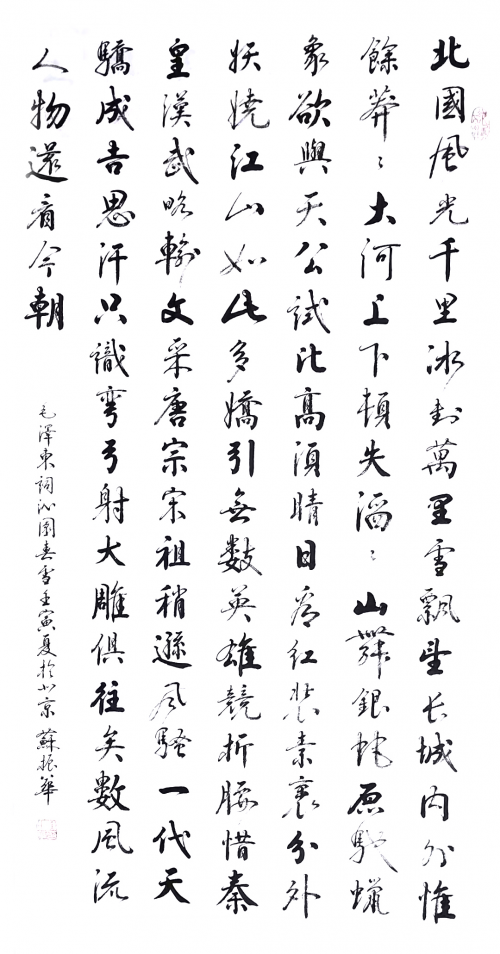 北國風光千里冰封萬里雪飄望长城内外惟
餘莽〻大河上下頓失滔〻山舞銀蛇原馳蠟
象欲與天公試比高須晴日看红裝素裹分外
妖嬈江山如此多嬌引無数英雄競折腰惜秦
皇漢武略輸文采唐宗宋祖稍遜风騷一代天
驕成吉思汗只識彎弓射大雕俱往矣數風流
人物還看今朝
毛澤東詞沁園春雪壬寅夏於北京 蘇振華